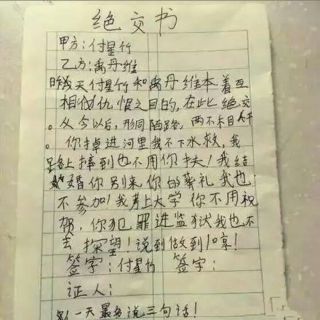 绝交书
甲方:付星竹
乙方:禹丹维
昨天付星竹和禹丹维本着互
相似仇恨之目的,在此绝交
从今以后,形同陌路,两不相干
你掉进河里我不下水救,我
路上摔到也不用你扶!我结
婚你别来,你的葬礼我也
不参加!我考上大学你不用祝
贺,你犯罪进监狱我也不
去探望!说到做到10享!
签字:付星竹 签字:
证人:
一天最多说三句话!